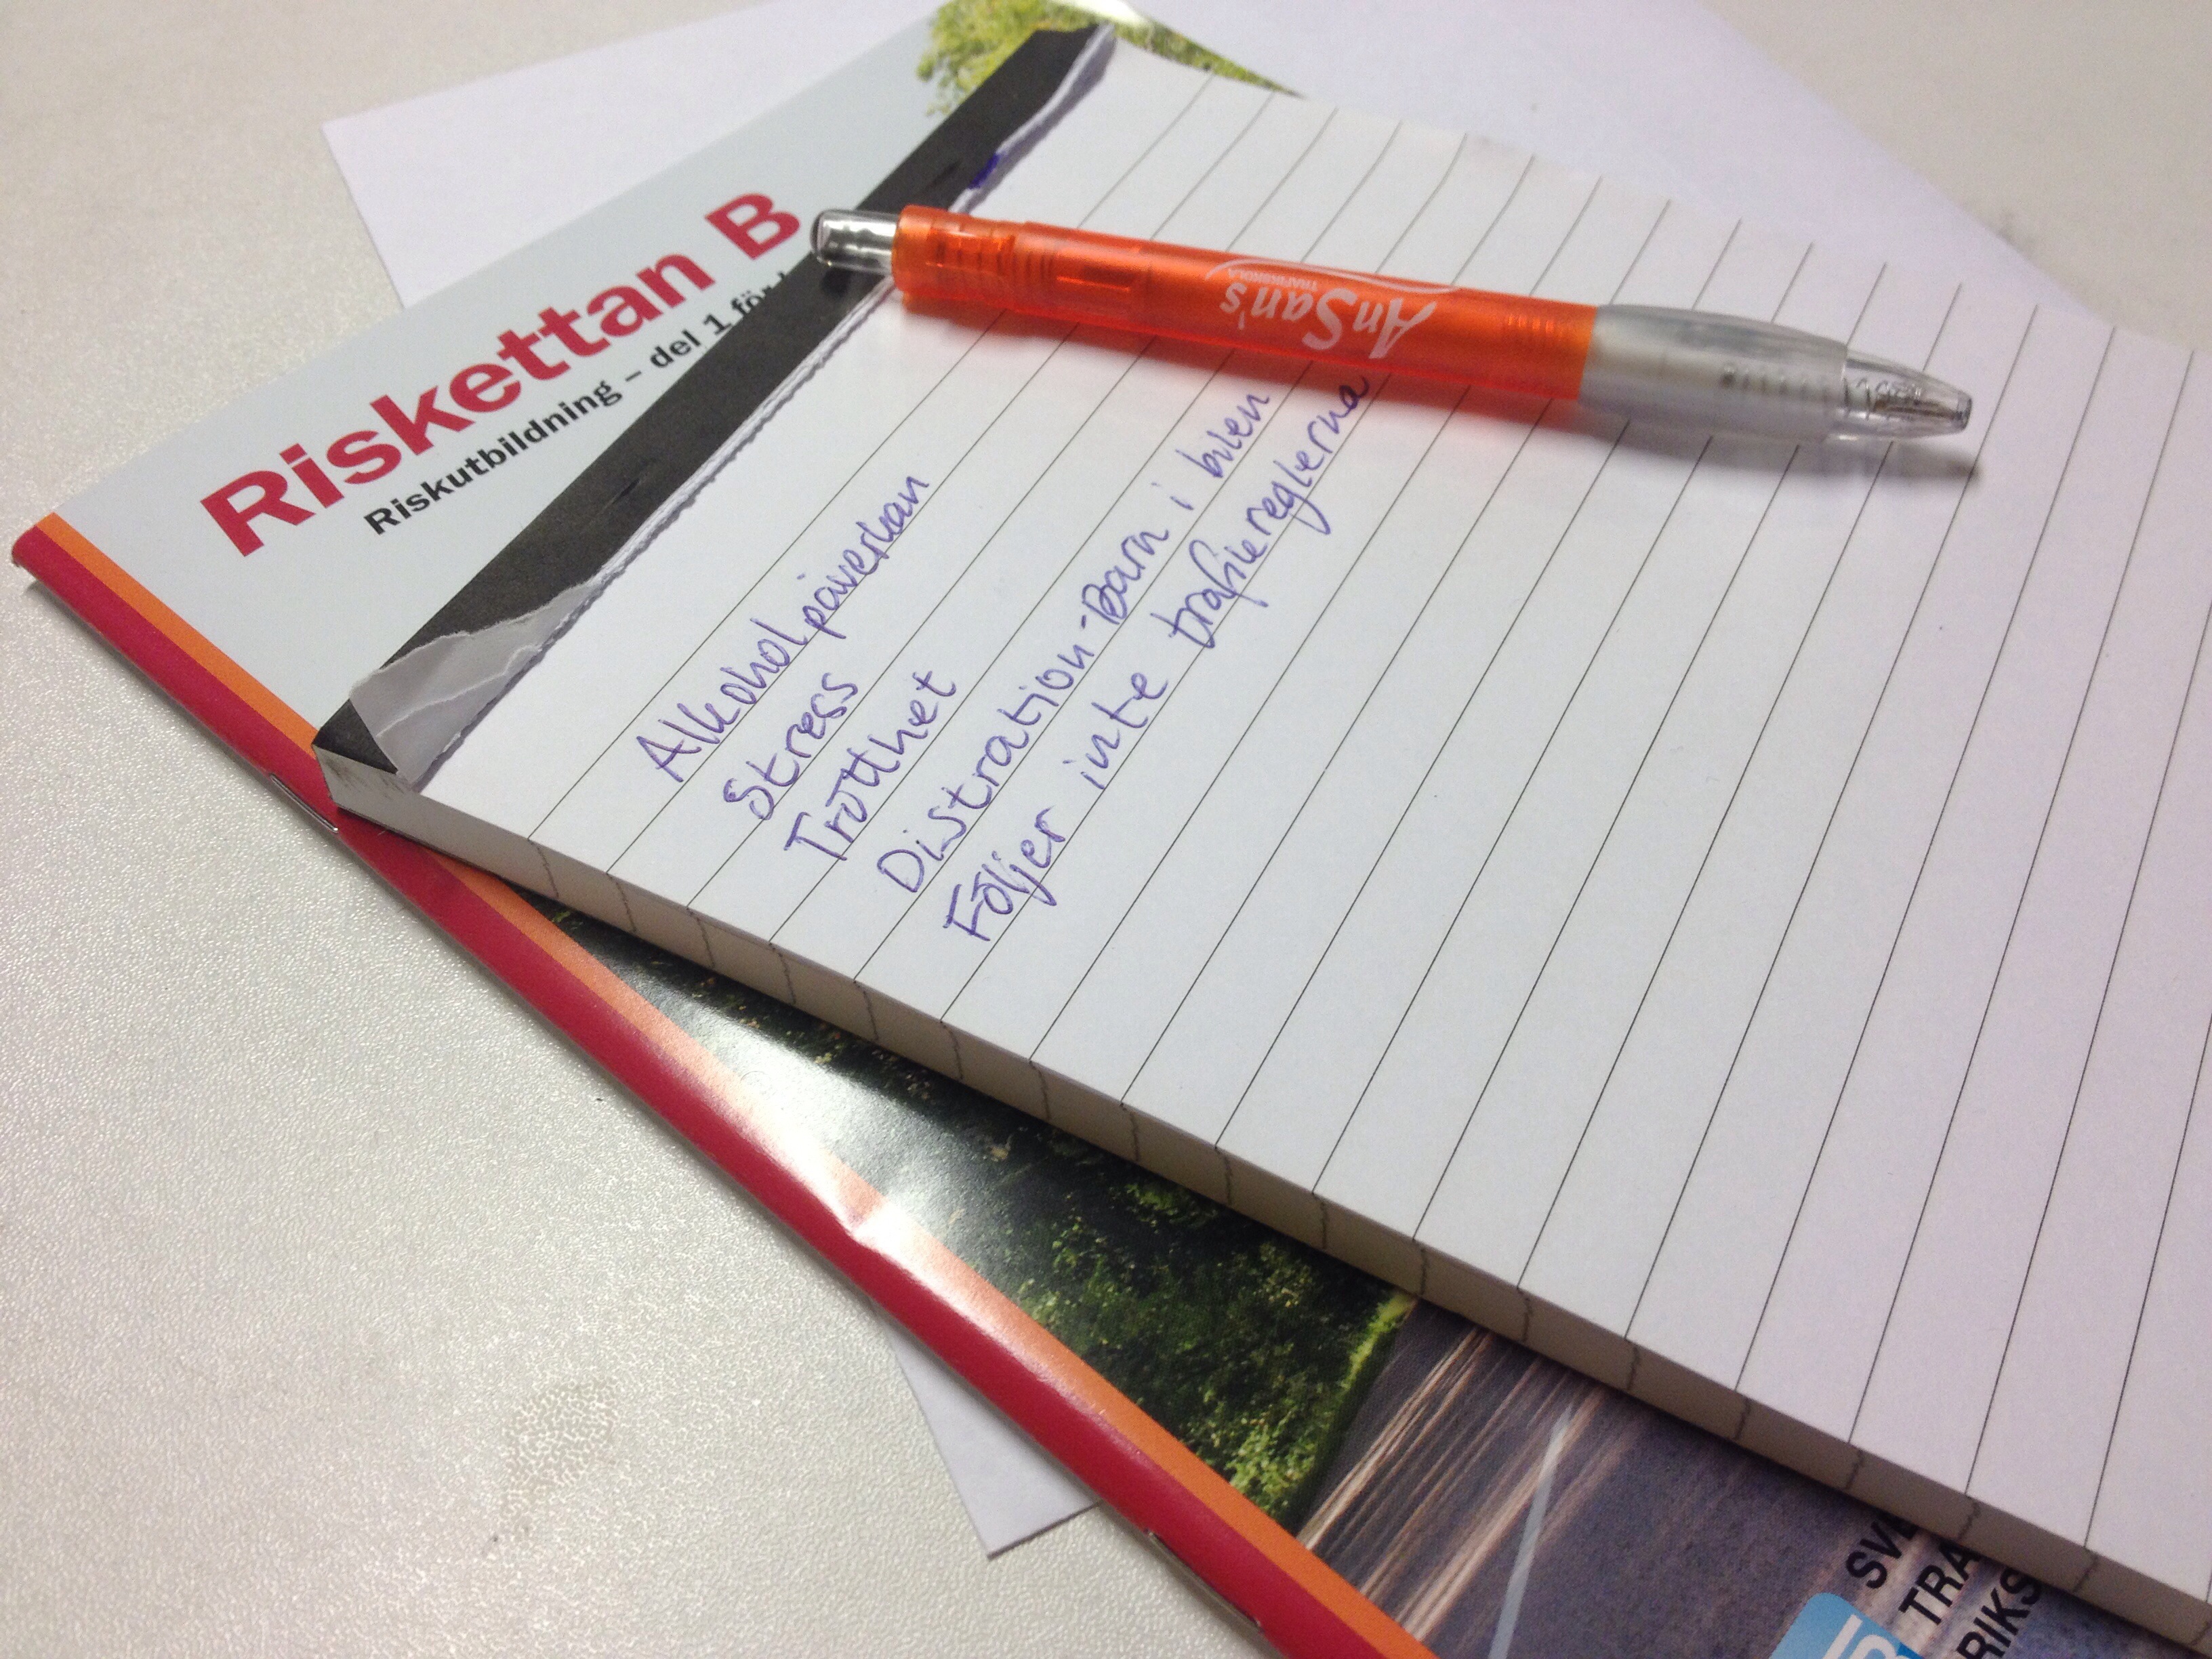 Riskettan B
Riskutbildning – del 1 för
AnSan's
TRAFIKSKOLA
Alkoholpåverkan
Stress
Trötthet
Distration - Barn i bilen
Följer inte trafikreglerna
SVE
TRA
RIKS